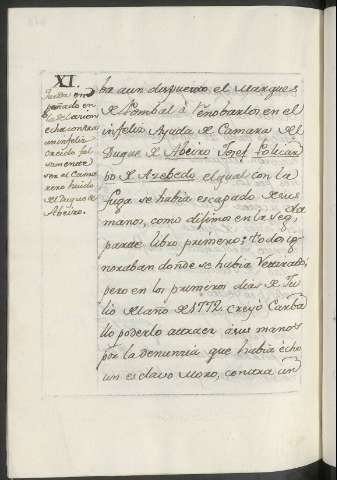 XI.
Saña em
peñado en
la delacion
echa contra
un infeliz
creido fal
samente
ser el Cama
rero huido
del Duque de
Abeiro.
ba aun dispuesto el Marques
de Pombal à renobarlos en el
infeliz Ayuda de Camara del
Duque de Abeiro Josef Policar
po de Azebedo el qual con la
fuga se habia escapado de sus
manos, como dijimos en la seg.da
parte libro primero: todos ig
noraban donde se habia retirado,
pero en los primeros dias de Ju
lio del año de 1772, creyó Carba
llo poderlo attraer à sus manos
por la denunzia que habia écho
un esclavo Moro, contra un